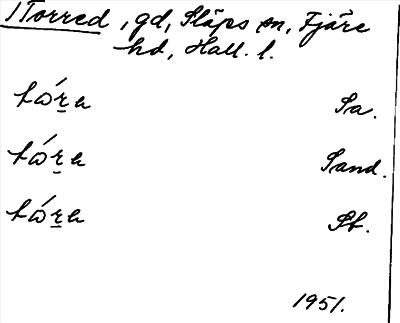 1 Torred, gd, Släps sn, Fjäre
hd, Hall. l.
tώr̲a Sa.
tώr̲a Sand.
tώr̲a St.
1951.